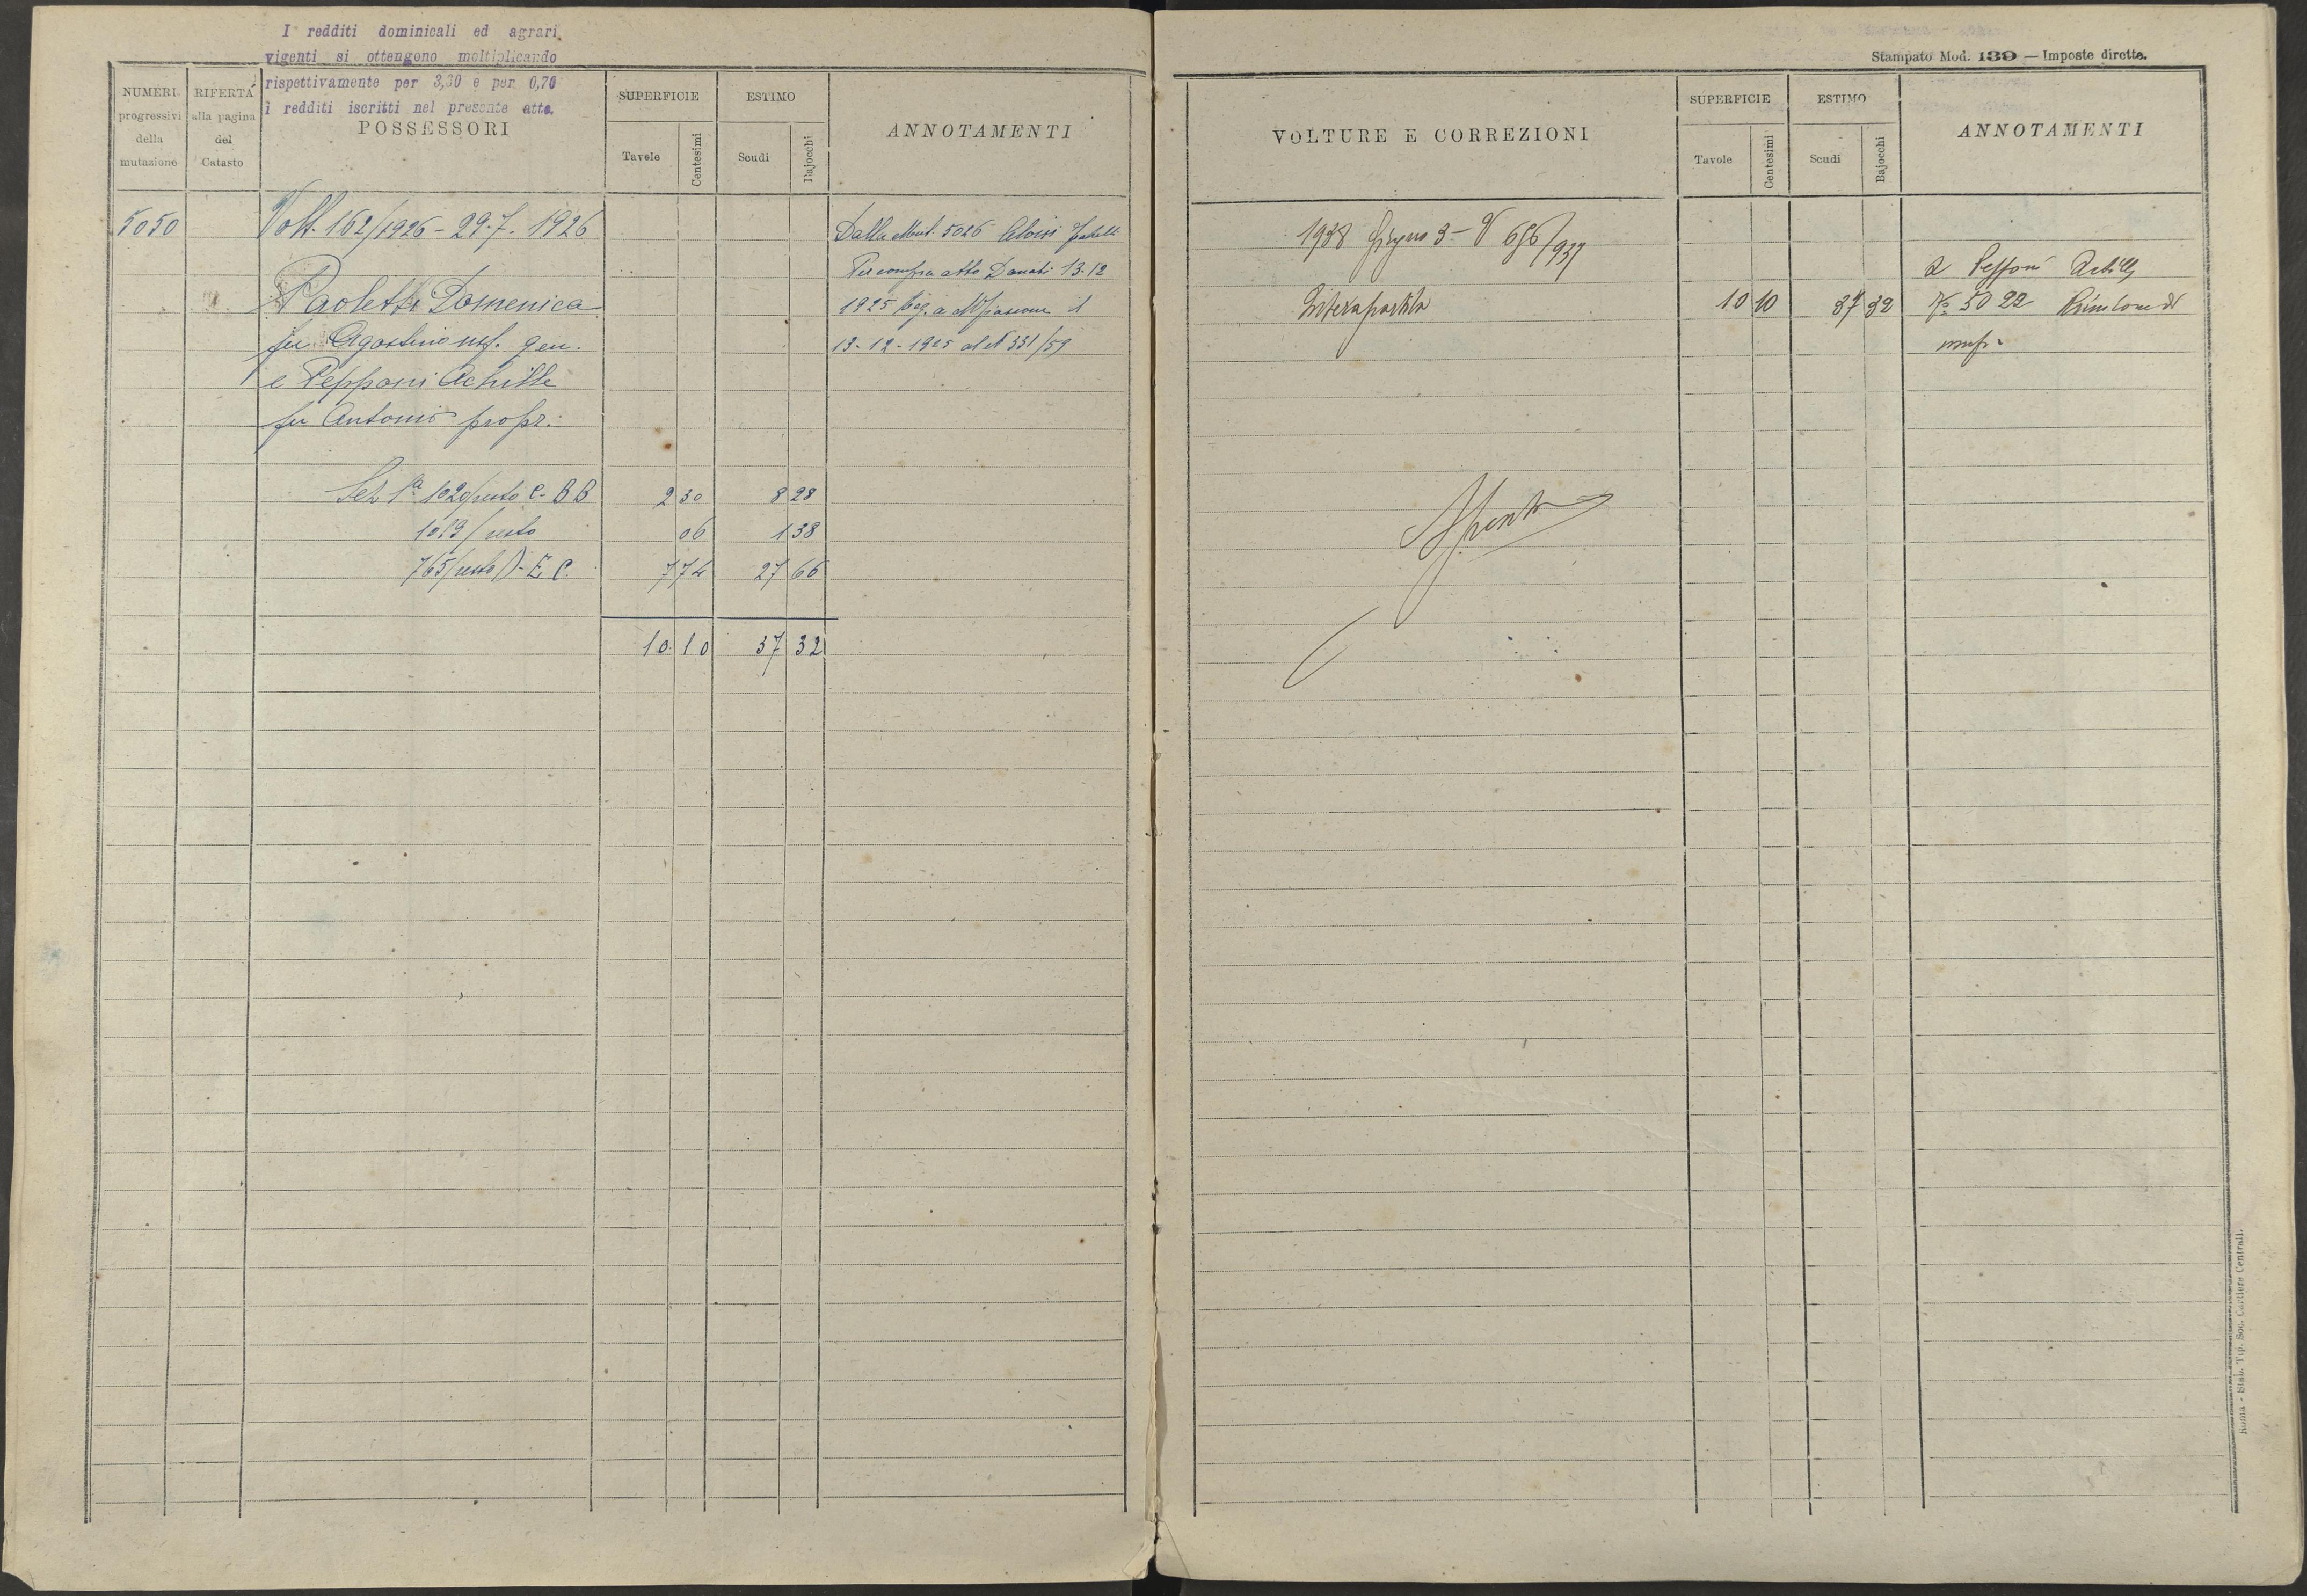 I redditi dominicali ed agrari
vigenti si ottengono moltiplicando
rispettivamente per 3,30 e per 0,70
i redditi iscritti nel presente atto.
NUMERI
progressivi
della
mutazione
RIFERTA
alla pagina
del
Catasto
POSSESSORI
SUPERFICIE
Tavole
Centesimi
ESTIMO
Scudi
Bajocchi
ANNOTAMENTI
5050 Volt. 162/1926 - 29.7.1926
Paoletti Domenica
fu Agostino usf. gen.
e Pepponi Achille
fu Antonio propr.
Sez 1a 1020/resto C-BB 2 30 8 28
1019/resto 06 1 38
765/resto D-E C. 7 74 27 66
10 10 37 32
Dalla Mut. 5026 Aloisi
Per compra atto Donati 13-12
1925 Reg. a il
13-12-1925 al N 331/59
Stampato Mod. 139 — Imposte dirette.
VOLTURE E CORREZIONI
SUPERFICIE
Tavole
Centesimi
ESTIMO
Scudi
Bajocchi
ANNOTAMENTI
1938 Giugno 3 - V 696/937
Intera partita 10 10 37 32
a Pepponi Achille
No 5022 Riunione di
usuf.
Spenta
Roma - Stab. Tip. Soc. Cartiere Centrali.